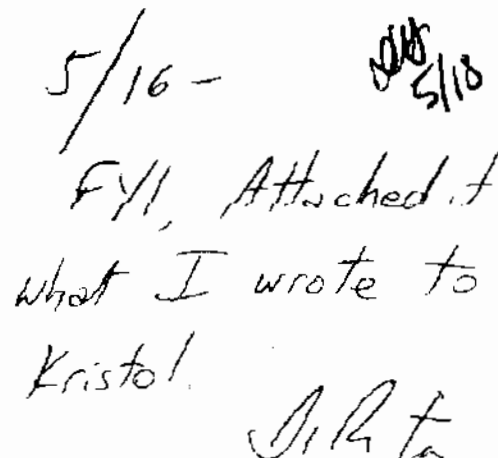 5/16 -
5/18
FYI, Attached is
what I wrote to
Kristol.
DiRita